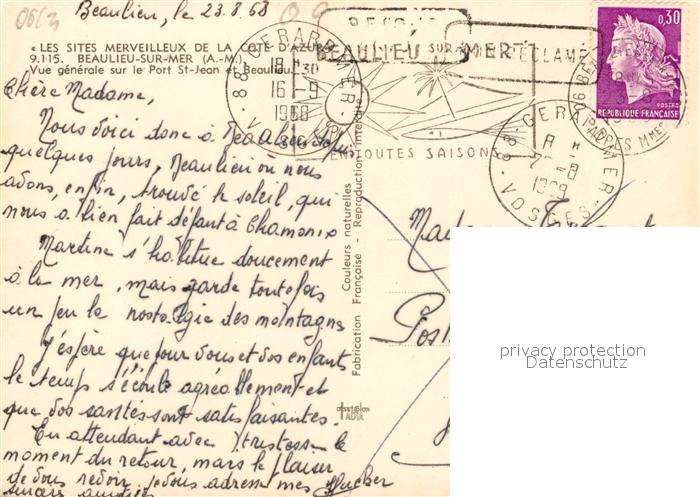 Beaulieu, le 23.8.68
« LES SITES MERVEILLEUX DE LA COTE D'AZUR
9.115. BEAULIEU-SUR-MER (A.-M.)
Vue générale sur le Port St-Jean et Beaulieu
BEAULIEU SUR MER
RÉCLAMÉ
EN TOUTES SAISONS
88 GERARDMER
18 H 30
16-9
1968
88 GERARDMER
VOSGES
0,30
POSTES
REPUBLIQUE FRANÇAISE
Chère Madame,
Nous voici donc à Beaulieu depuis
quelques jours, Beaulieu où nous
avons, enfin, trouvé le soleil, qui
nous a bien fait défaut à Chamonix
Martine s'habitue doucement
à la mer, mais garde toutefois
un peu la nostalgie des montagnes
J'espère que pour vous et vos enfants
le temps s'écoule agréablement et
que vos santés sont satisfaisantes.
En attendant avec tristesse le
moment du retour, mais le plaisir
de vous revoir je vous adresse mes
sincères amitiés
Couleurs naturelles
Fabrication Française - Reproduction interdite
Madame
privacy protection
Datenschutz